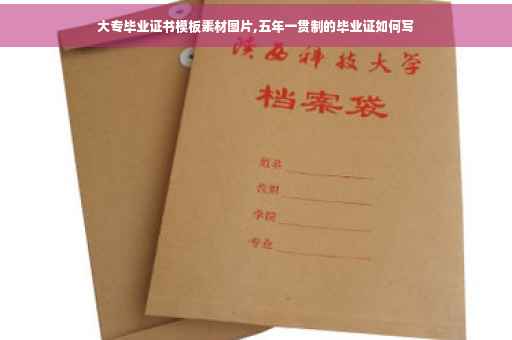 大专毕业证书模板素材图片,五年一贯制的毕业证如何写
陕西科技大学
档案袋
姓名
学院
专业